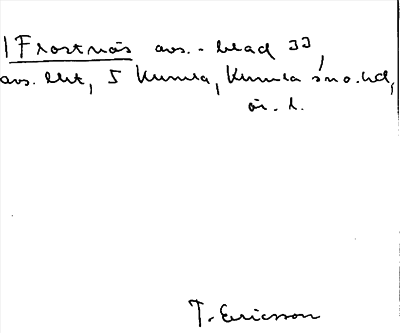 Frostnäs avs. - blad JJ,
avs. Ekt, S Kumla, Kumla sno. hd,
ör. l.
T. Ericsson